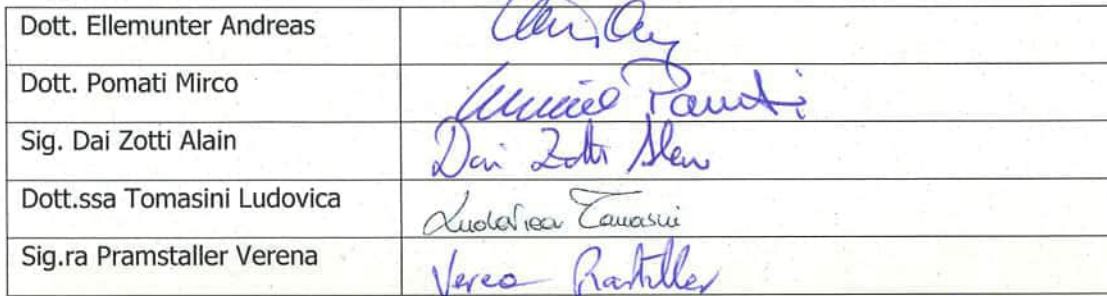 Dott. Ellemunter Andreas
Dott. Pomati Mirco
Sig. Dai Zotti Alain Dai Zotti Alain
Dott.ssa Tomasini Ludovica Ludovica Tomasini
Sig.ra Pramstaller Verena